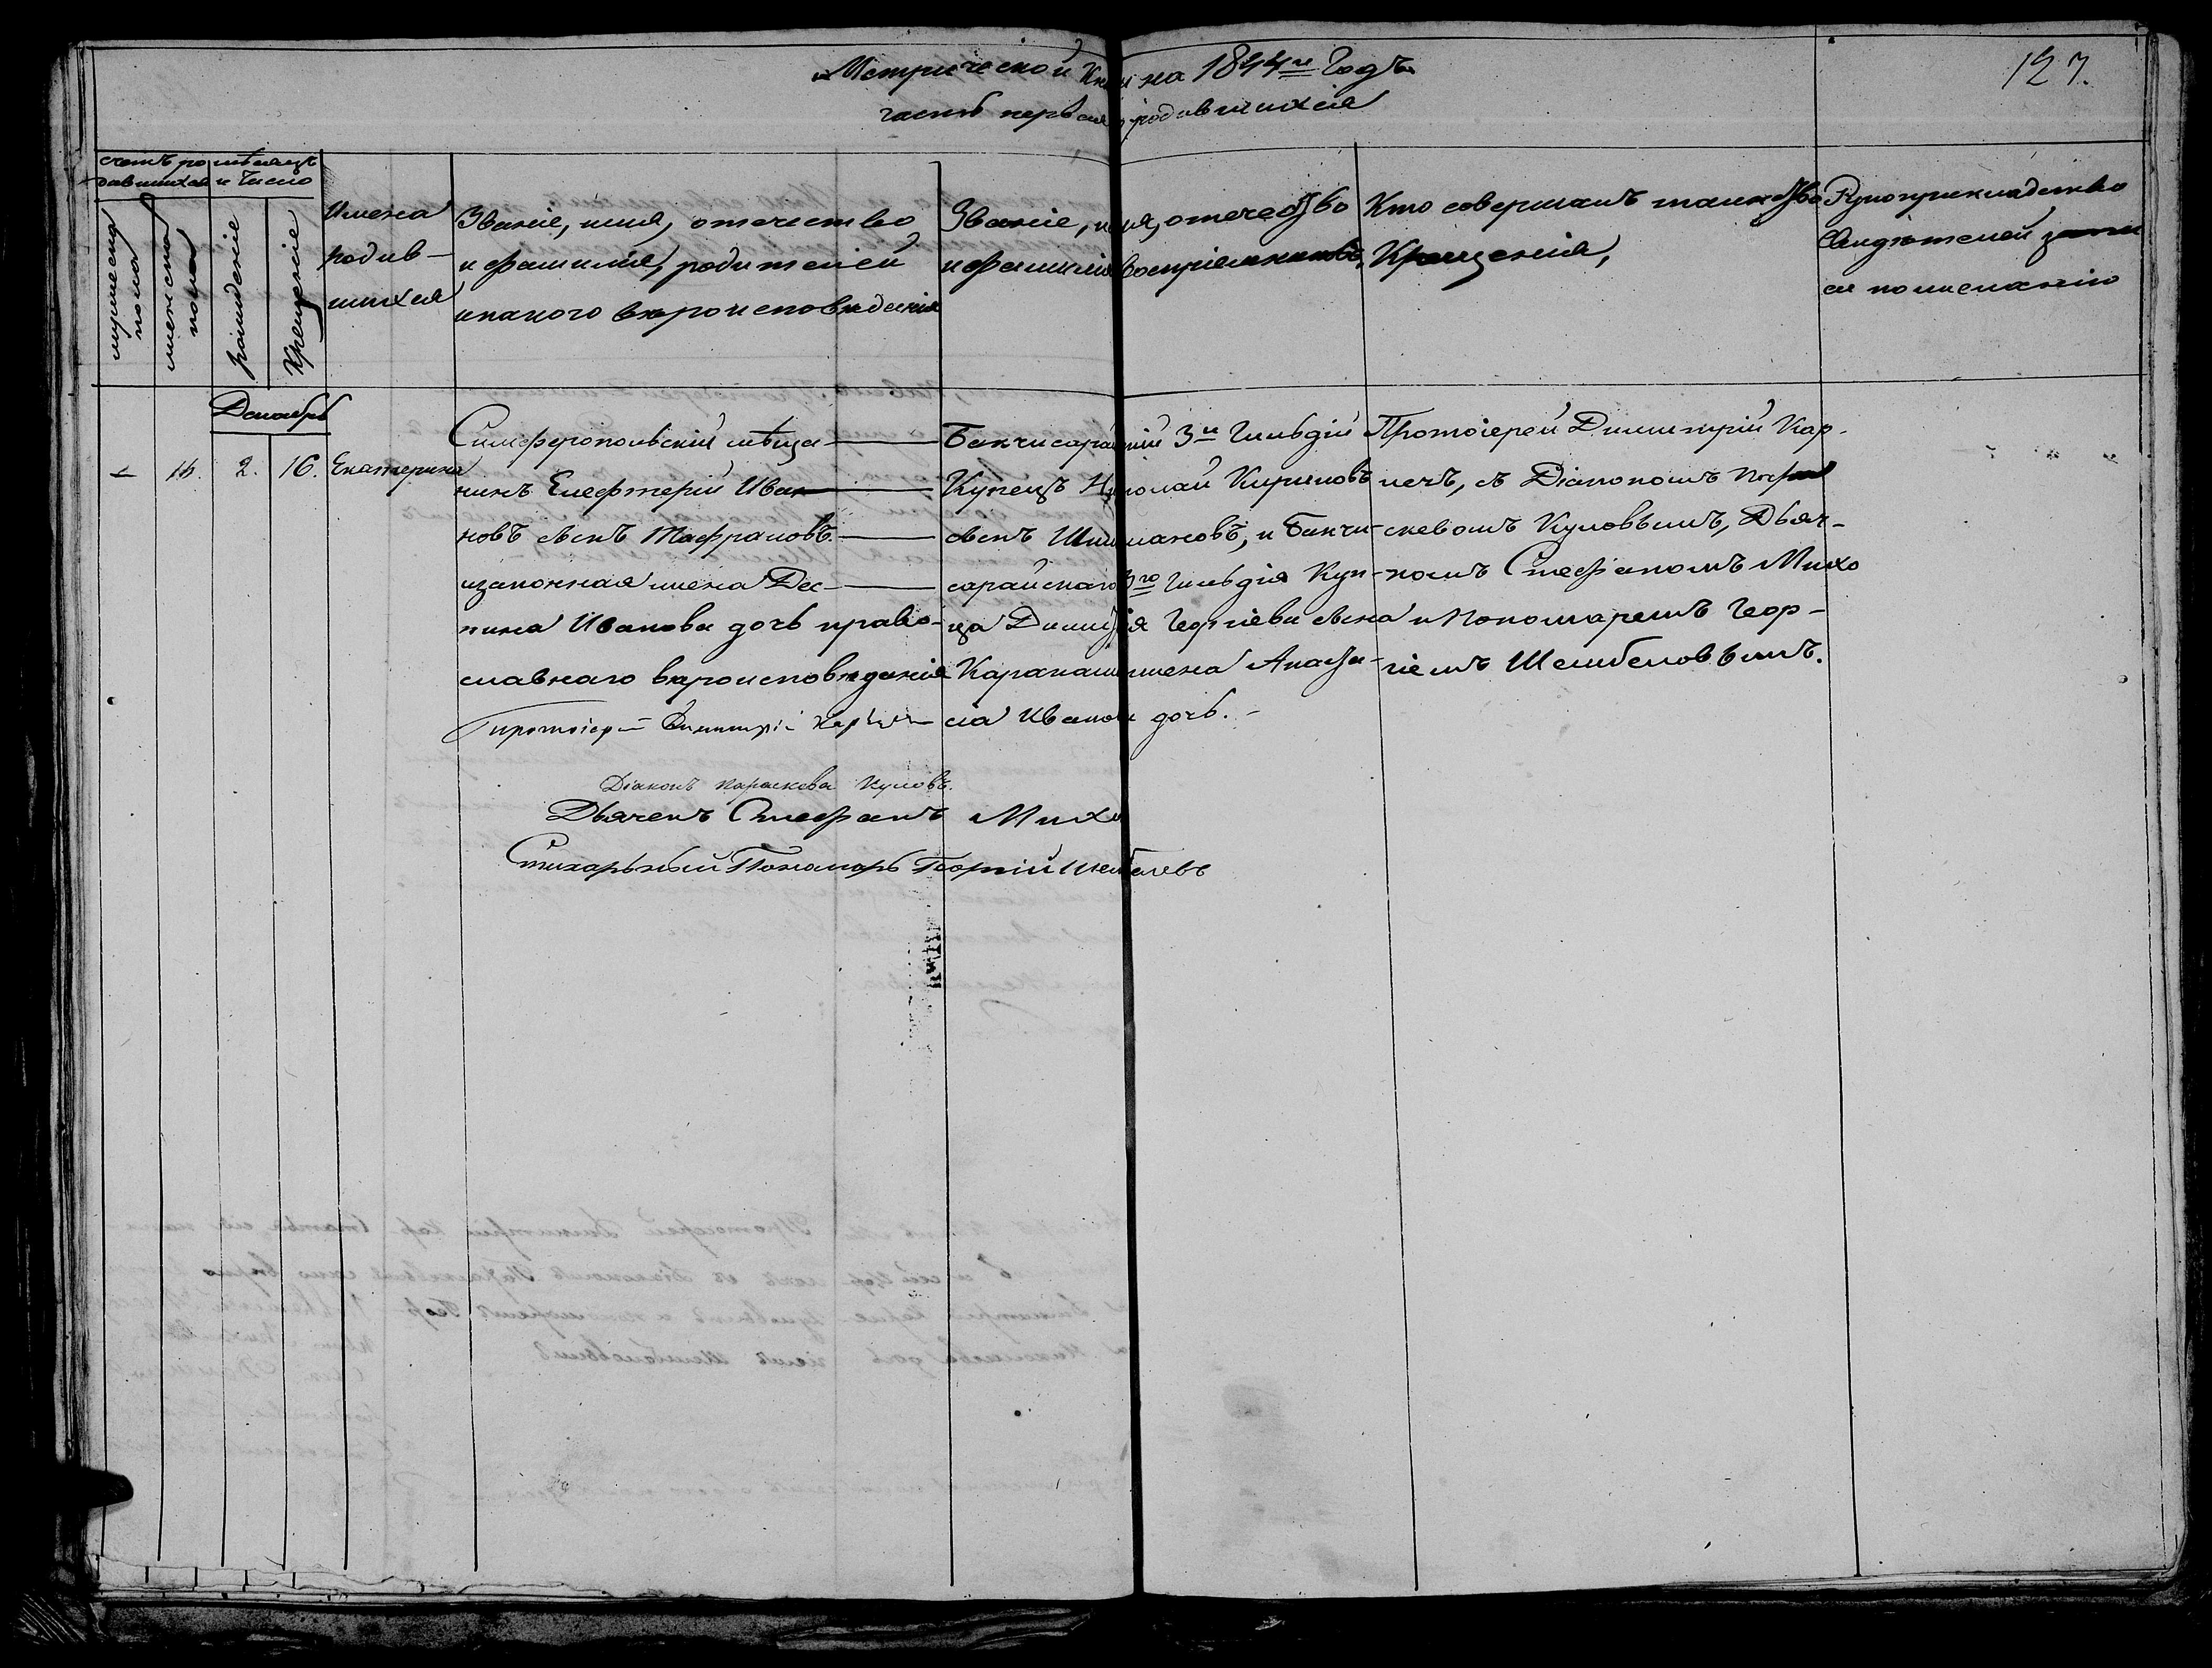 Метрической Книги на 1844й Годъ
часть первая о родившихся
127.
счетъ ро
дившихся
мѣсяцъ
и число
мужеска
пола
женска
пола
рожденіе
Крещеніе
Имена
родив-
шихся
Званіе, имя, отчество
и фамилія, родителей
и какого вѣроисповѣданія
Званіе, имя, отечество
и фамилія воспріемниковъ,
Кто совершалъ таинство
Крещенія,
Рукоприкладство
Свидѣтелей
по желанію
Декабрь
2.
16.
Екатерина
Симферопольскій мѣща
нинъ Елефтерій Ива
новъ сынъ Тафраловъ.
и законная жена Дес
пина Иванова дочь право-
славнаго вѣроисповѣданія
Бакчисарайскій 3й Гильдій
Купецъ Николай Кириловъ
сынъ Шишмановъ, и Бакчи-
сарайскаго 3го Гильдія Куп-
ца Димитрія Георгіева сына
Каракаш жена Анаста-
сіа Иванова дочь. -
Протоіерей Димитрій Кар-
печъ, съ Діакономъ Пара
скевомъ Куловымъ, Дьяч-
комъ Стефаномъ Михо
и Пономаремъ Геор-
гіемъ Шелибеловымъ.
Протоіерей Димитрій
Діаконъ Параскева Куловъ.
Дьячекъ Стефанъ Михо
Стихарьный Пономарь Георгій